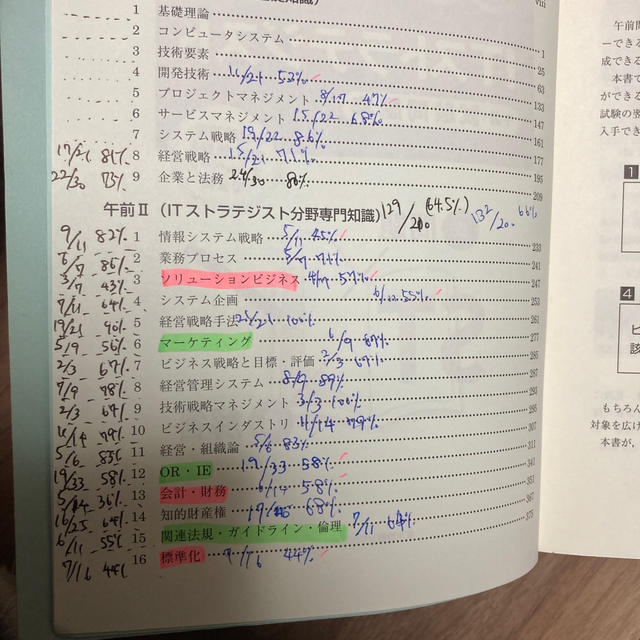 viii
1 基礎理論 1
2 コンピュータシステム 25
3 技術要素 63
4 開発技術 11/21 53% 133
5 プロジェクトマネジメント 8/17 47% 147
6 サービスマネジメント 15/22 68% 161
7 システム戦略 19/22 86% 177
17/21 81% 8 経営戦略 15/21 71% 195
22/30 73% 9 企業と法務 24/30 80% 209
午前Ⅱ (ITストラテジスト分野専門知識) 129/200 (64.5%) 132/200 66%
9/11 82% 1 情報システム戦略 5/11 45% 233
6/7 86% 2 業務プロセス 5/7 71% 241
3/7 43% 3 ソリューションビジネス 4/7 57% 247
7/11 64% 4 システム企画 6/11 55% 253
19/21 90% 5 経営戦略手法 21/21 100% 261
5/9 56% 6 マーケティング 6/9 67% 271
2/3 67% 7 ビジネス戦略と目標・評価 2/3 67% 285
7/9 78% 8 経営管理システム 8/9 89% 287
2/3 67% 9 技術戦略マネジメント 3/3 100% 293
11/14 79% 10 ビジネスインダストリ 11/14 79% 295
5/6 83% 11 経営・組織論 5/6 83% 307
19/33 58% 12 OR・IE 19/33 58% 311
5/14 36% 13 会計・財務 /14 58% 341
16/25 64% 14 知的財産権 17/25 68% 351
6/11 55% 15 関連法規・ガイドライン・倫理 7/11 64% 367
7/16 44% 16 標準化 7/16 44% 375
午前問
ーできる
成できる
本書で
ができる
試験の翌
入手でき
1
4
ビ
該
もちろん
対象を広げ
本書が,